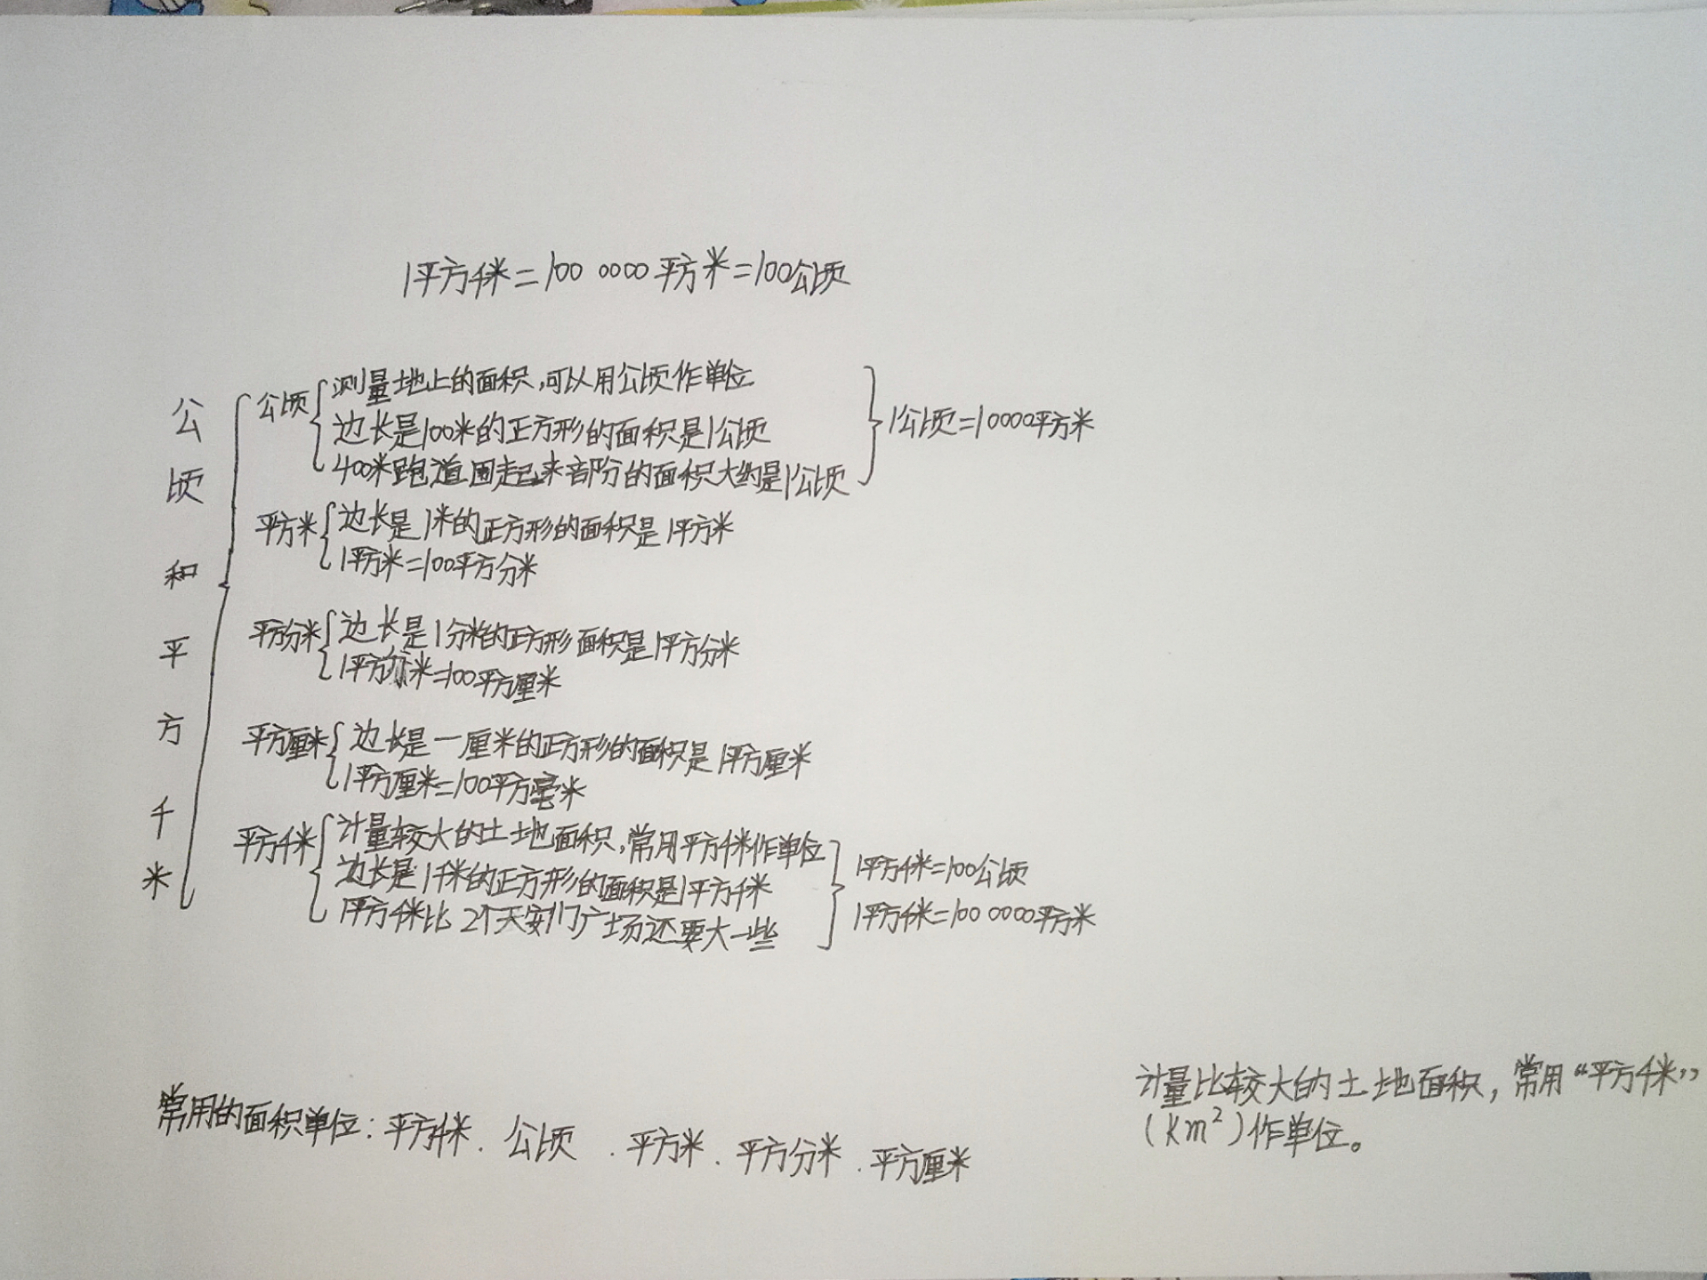 1平方千米=100 0000平方米=100公顷
公顷和平方千米
公顷
测量地上的面积,可以用公顷作单位
边长是100米的正方形的面积是1公顷
400米跑道围起来部分的面积大约是1公顷
1公顷=10000平方米
平方米
边长是1米的正方形的面积是1平方米
1平方米=100平方分米
平方分米
边长是1分米的正方形面积是1平方分米
1平方分米=100平方厘米
平方厘米
边长是一厘米的正方形的面积是1平方厘米
1平方厘米=100平方毫米
平方千米
计量较大的土地面积,常用平方千米作单位
边长是1千米的正方形的面积是1平方千米
1平方千米比2个天安门广场还要大一些
1平方千米=100公顷
1平方千米=100 0000平方米
计量比较大的土地面积,常用“平方千米”
(km²)作单位。
常用的面积单位:平方千米.公顷.平方米.平方分米.平方厘米